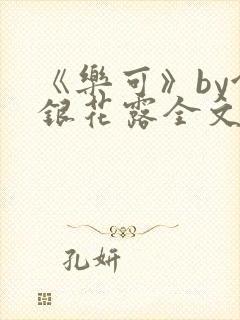 《樂可》by
銀花露全文
孔妍